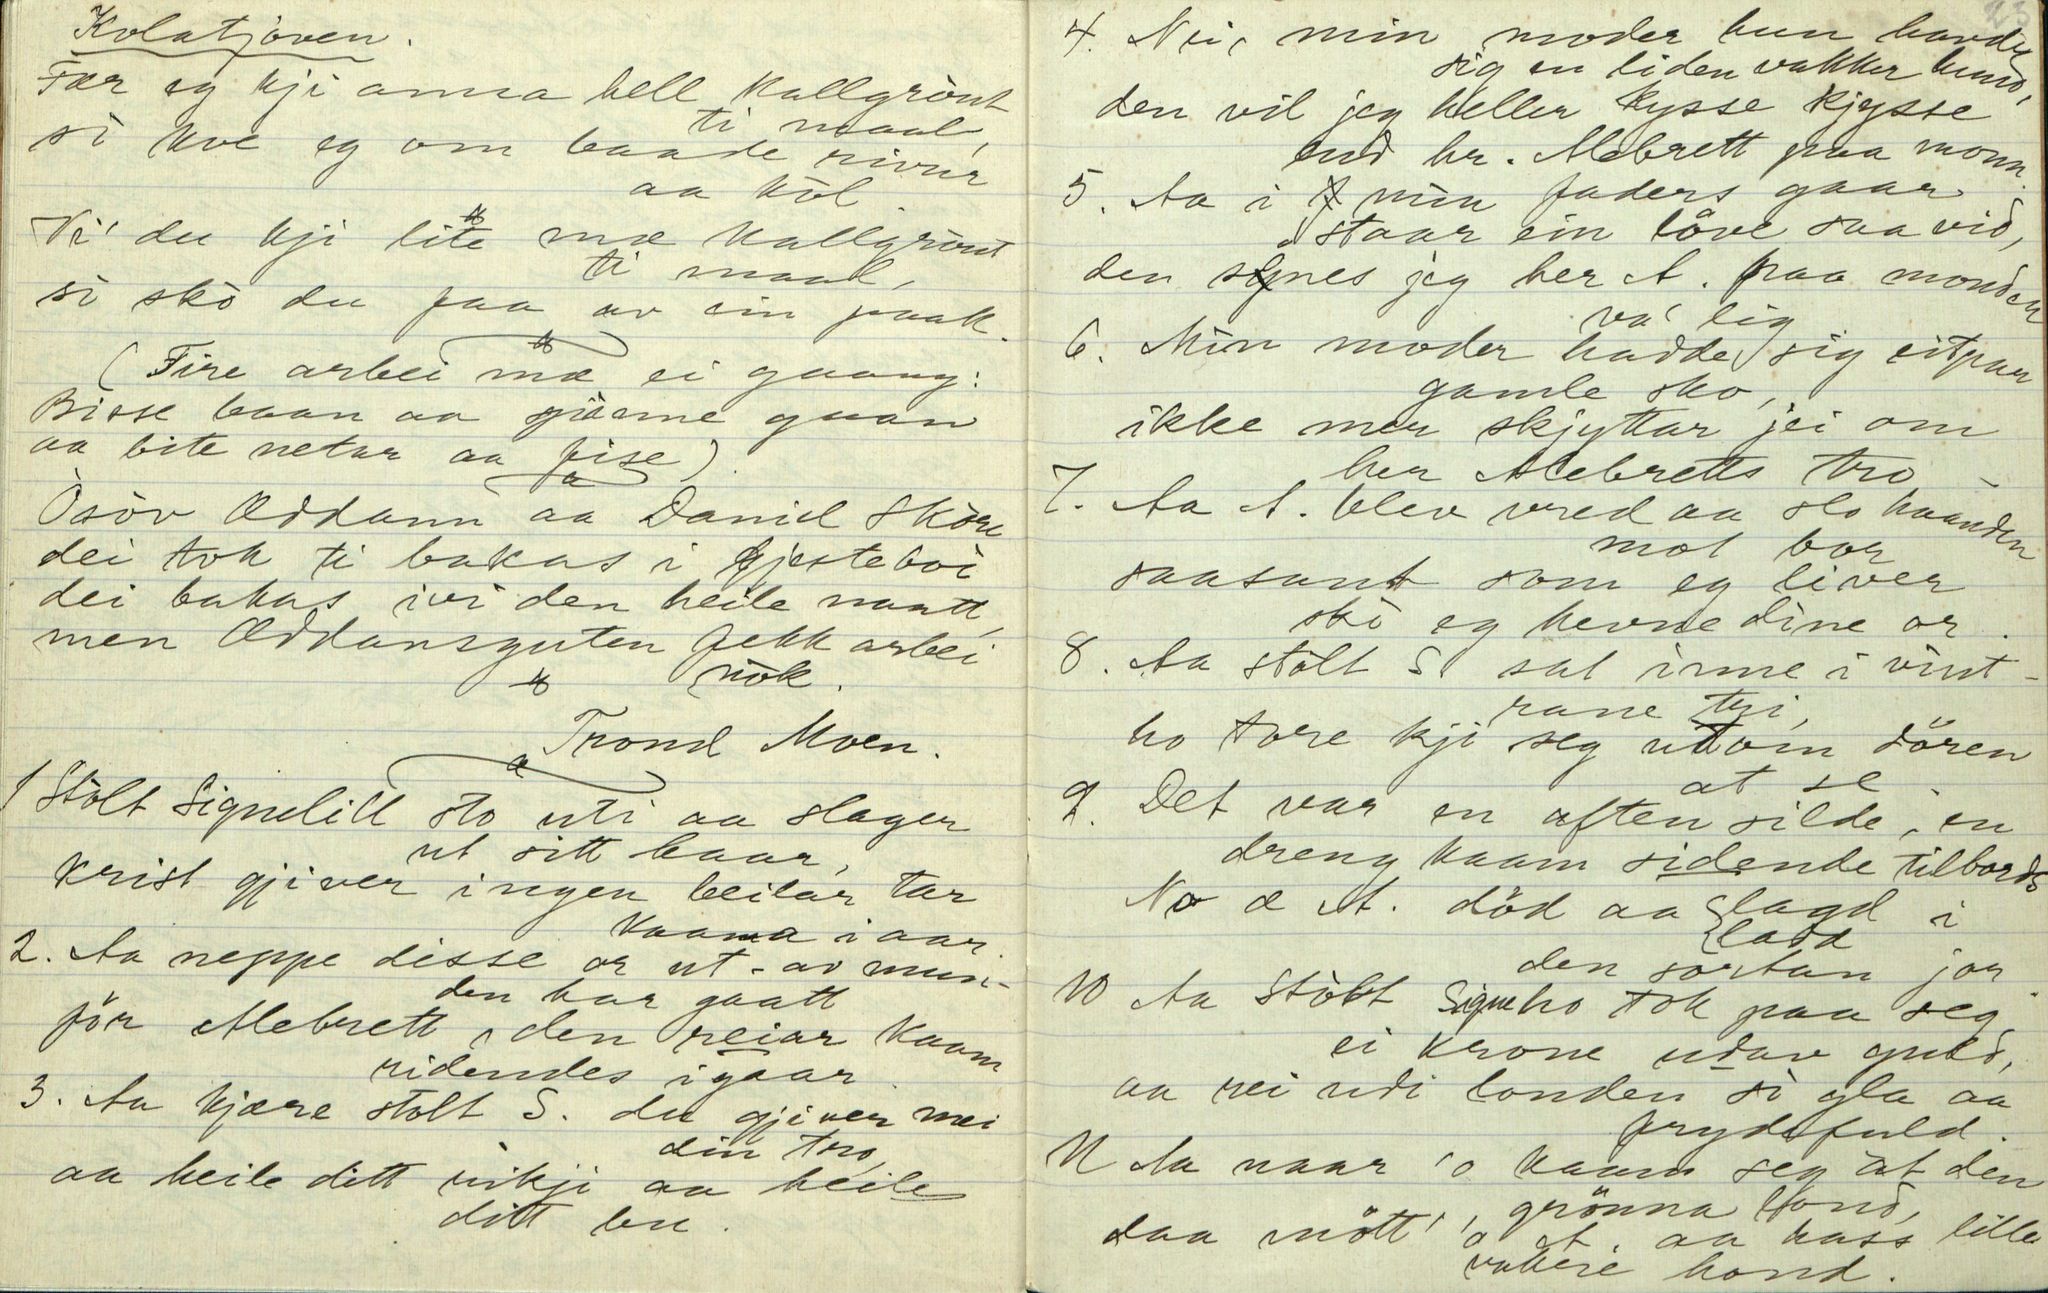 Kolatjøven.
Fær eg kji anna hell kallgrònt
ti maal,
sì kve eg om baade rivur
aa kòl.
Vi' du kji lite mæ kallgrònt
ti maal,
sì skò du faa av ein paak.
(Fire arbei mæ ei gaang:
Bisse baan aa gjæme gaan
aa bite netar aa fise)
Òsòv Øddann aa Daniel Skòre
dei tok ti bakas i gjesteboi
dei bakas ivi den heile naatt,
men Øddansguten fekk arbei
nòk.
Trond Moen.
1 Stòlt Signelill sto uti aa slager
ut sitt haar,
Krist gjiver ingen beilar tar
kaama i aar
2. Aa neppe disse or ut-av mun-
den har gaatt
för Alebrett, den reiar kaam
ridendes igaar.
3. Aa kjære stolt S. du gjiver mei
din tro,
aa heile ditt rikji aa heile
ditt bu.
23
4. Nei, min moder hun havde
sig en liden vakker hund,
den vil jeg heller kysse kjysse
end hr. Alebrett paa monn.
5. Aa i min faders gaar
staar ein löve saa vid,
den synes jeg her A. paa monden
va' lig
6. Min moder hadde sig eit paar
gamle sko,
ikke mer skjyttar jei om
her Alebretts tro
7. Aa A. blev vred aa slo haanden
mot bor
saasant som eg liver
skò eg hevne dine or.
8. Aa stòlt S. sat inne i vint-
rane tri,
ho tore kji seg utom dören
at se
9. Det var en aften silde, en
dreng kaam ridende tilbords
No æ A. död aa lagd i
ladd
den sòrtan jor.
10 Aa Stòlt Signe ho tok paa seg
ei krone udav guld,
aa rei udi londen sì gla aa
prydefuld.
11 Aa naar 'o kaam seg at den
grönna lond,
daa mött' 'o A. aa hass lille
vakere hond.